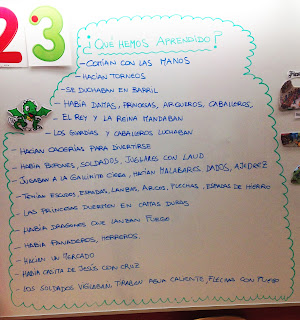 23
¿QUÉ HEMOS APRENDIDO?
- COMÍAN CON LAS MANOS
- HACÍAN TORNEOS
- SE DUCHABAN EN BARRIL
- HABÍA DAMAS, PRINCESAS, ARQUEROS, CABALLEROS,
- EL REY Y LA REINA MANDABAN
- LOS GUARDIAS Y CABALLEROS LUCHABAN
- HACÍAN CACERÍAS PARA DIVERTIRSE
- HABÍA BUFONES, SOLDADOS, JUGLARES CON LAUD
- JUGABAN A LA GALLINITA CIEGA, HACÍAN MALABARES, DADOS, AJEDREZ
- TENÍAN ESCUDOS, ESPADAS, LANZAS, ARCOS, FLECHAS, ESPADAS DE HIERRO
- LAS PRINCESAS DUERMEN EN CAMAS DUROS
- HABÍA DRAGONES QUE LANZABAN FUEGO
- HABÍA PANADEROS, HERREROS.
- HACÍAN UN MERCADO
- HABÍA CASITA DE JESÚS CON CRUZ
- LOS SOLDADOS VIGILABAN TIRABAN AGUA CALIENTE, FLECHAS CON FUEGO